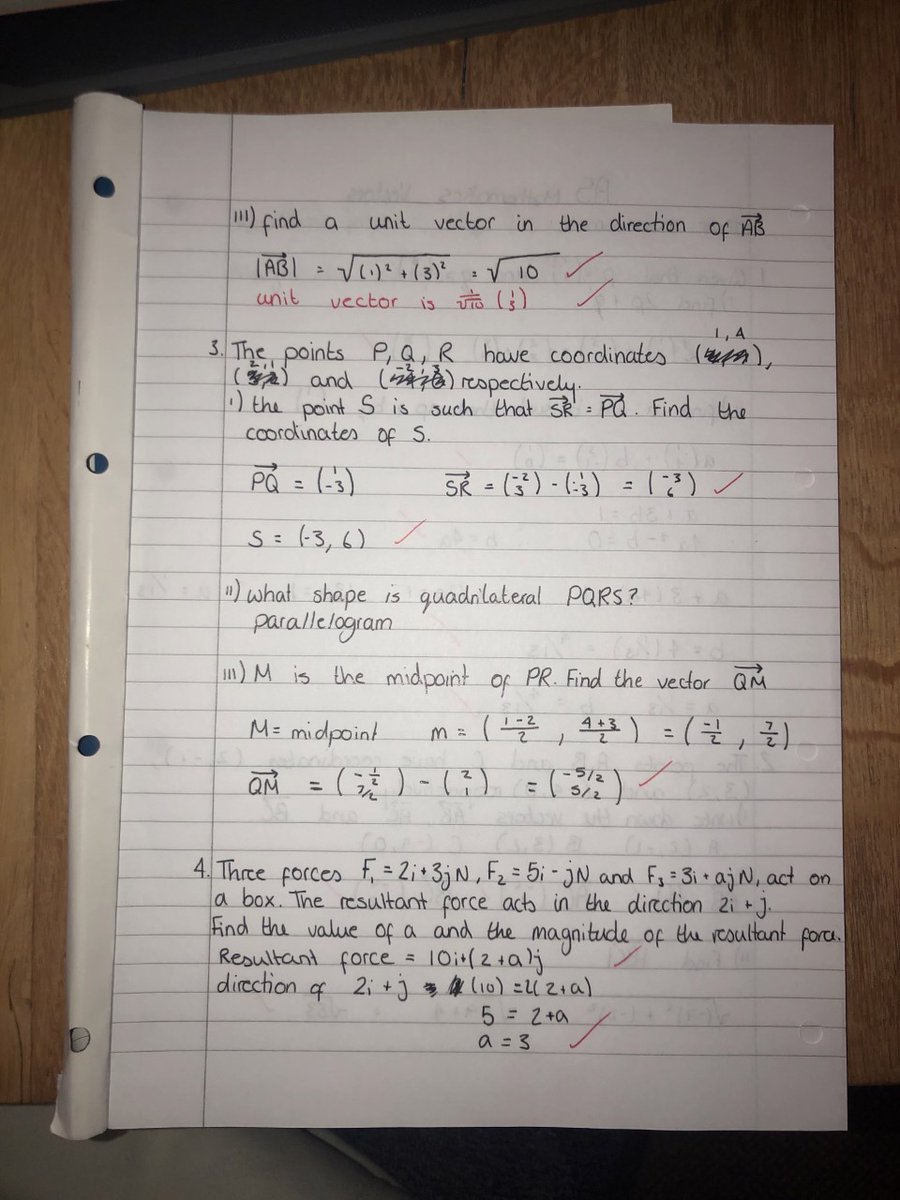 III) find a unit vector in the direction of A⃗B⃗
|A⃗B⃗| = √(1)² + (3)² = √10 ✓
unit vector is 1/√10 (1 3) ✓
1, 4
3. The points P, Q, R have coordinates ( ),
2, 1 -2, 3
( ) and ( ) respectively.
i) the point S is such that S⃗R⃗ = P⃗Q⃗. Find the
coordinates of S.
P⃗Q⃗ = (1 -3) S⃗R⃗ = (-2 3) - (1 -3) = (-3 6) ✓
S = (-3, 6) ✓
ii) what shape is quadrilateral PQRS?
parallelogram
III) M is the midpoint of PR. Find the vector Q⃗M⃗
M = midpoint m = (1-2/2, 4+3/2) = (-1/2, 7/2)
Q⃗M⃗ = (-1/2 7/2) - (2 1) = (-5/2 5/2) ✓
4. Three forces F₁ = 2i + 3j N, F₂ = 5i - j N and F₃ = 3i + aj N, act on
a box. The resultant force acts in the direction 2i + j.
Find the value of a and the magnitude of the resultant force.
Resultant force = 10i + (2 + a)j ✓
direction of 2i + j (10) = 2(2+a)
5 = 2+a
a = 3 ✓